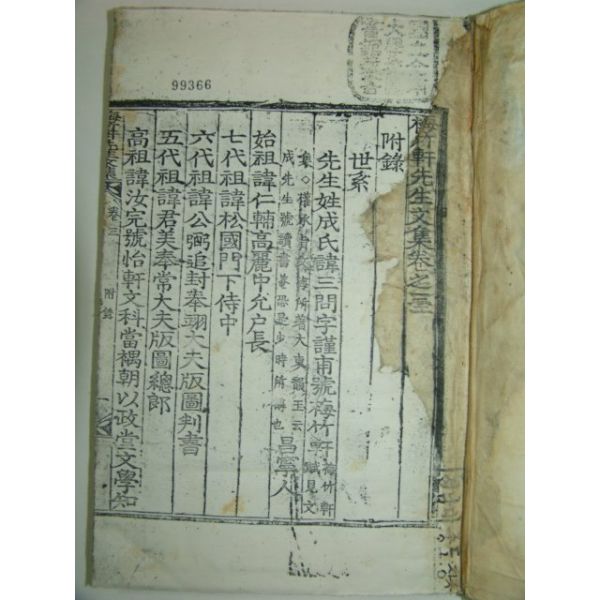 99366
梅竹軒先生文集卷之三
附錄
世系
先生姓成氏諱三問字謹甫號梅竹軒 梅竹軒賦見文
集 所著大東韻玉云
成先生號讀書菴恐是少時所號也 昌寧人
始祖諱仁輔高麗中允戶長
七代祖諱松國門下侍中
六代祖諱公弼追封奉翊大夫版圖判書
五代祖諱君美奉常大夫版圖總郎
高祖諱汝完號怡軒文科當禑朝以政堂文學知
卷三
附錄